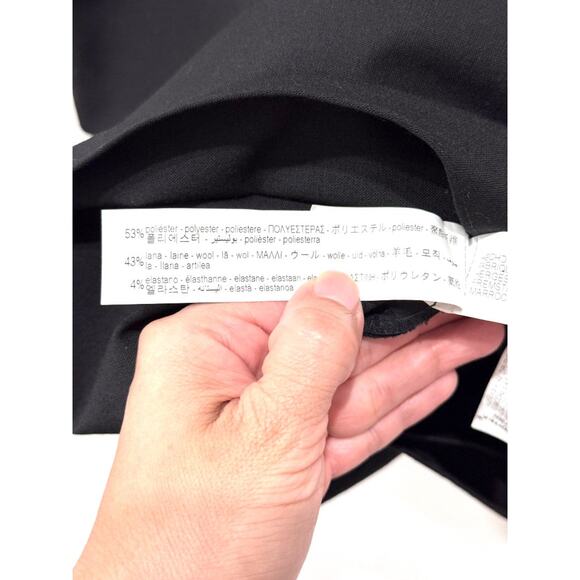 53% poliéster - polyester - poliestere - ΠΟΛΥΕΣΤΕΡΑΣ - ポリエステル - poliester -
폴리에스터 - بوليستير - polièster - poliesterra
43% lana - laine - wool - lã - wol - ΜΑΛΛΙ - ウール - wolle - uld - volna - 羊毛 - 모직
la - llana - artilea
4% elastano - élasthanne - elastane - elastaan - ポリウレタン -
엘라스탄 - الياستانه - elastà - elastanoa